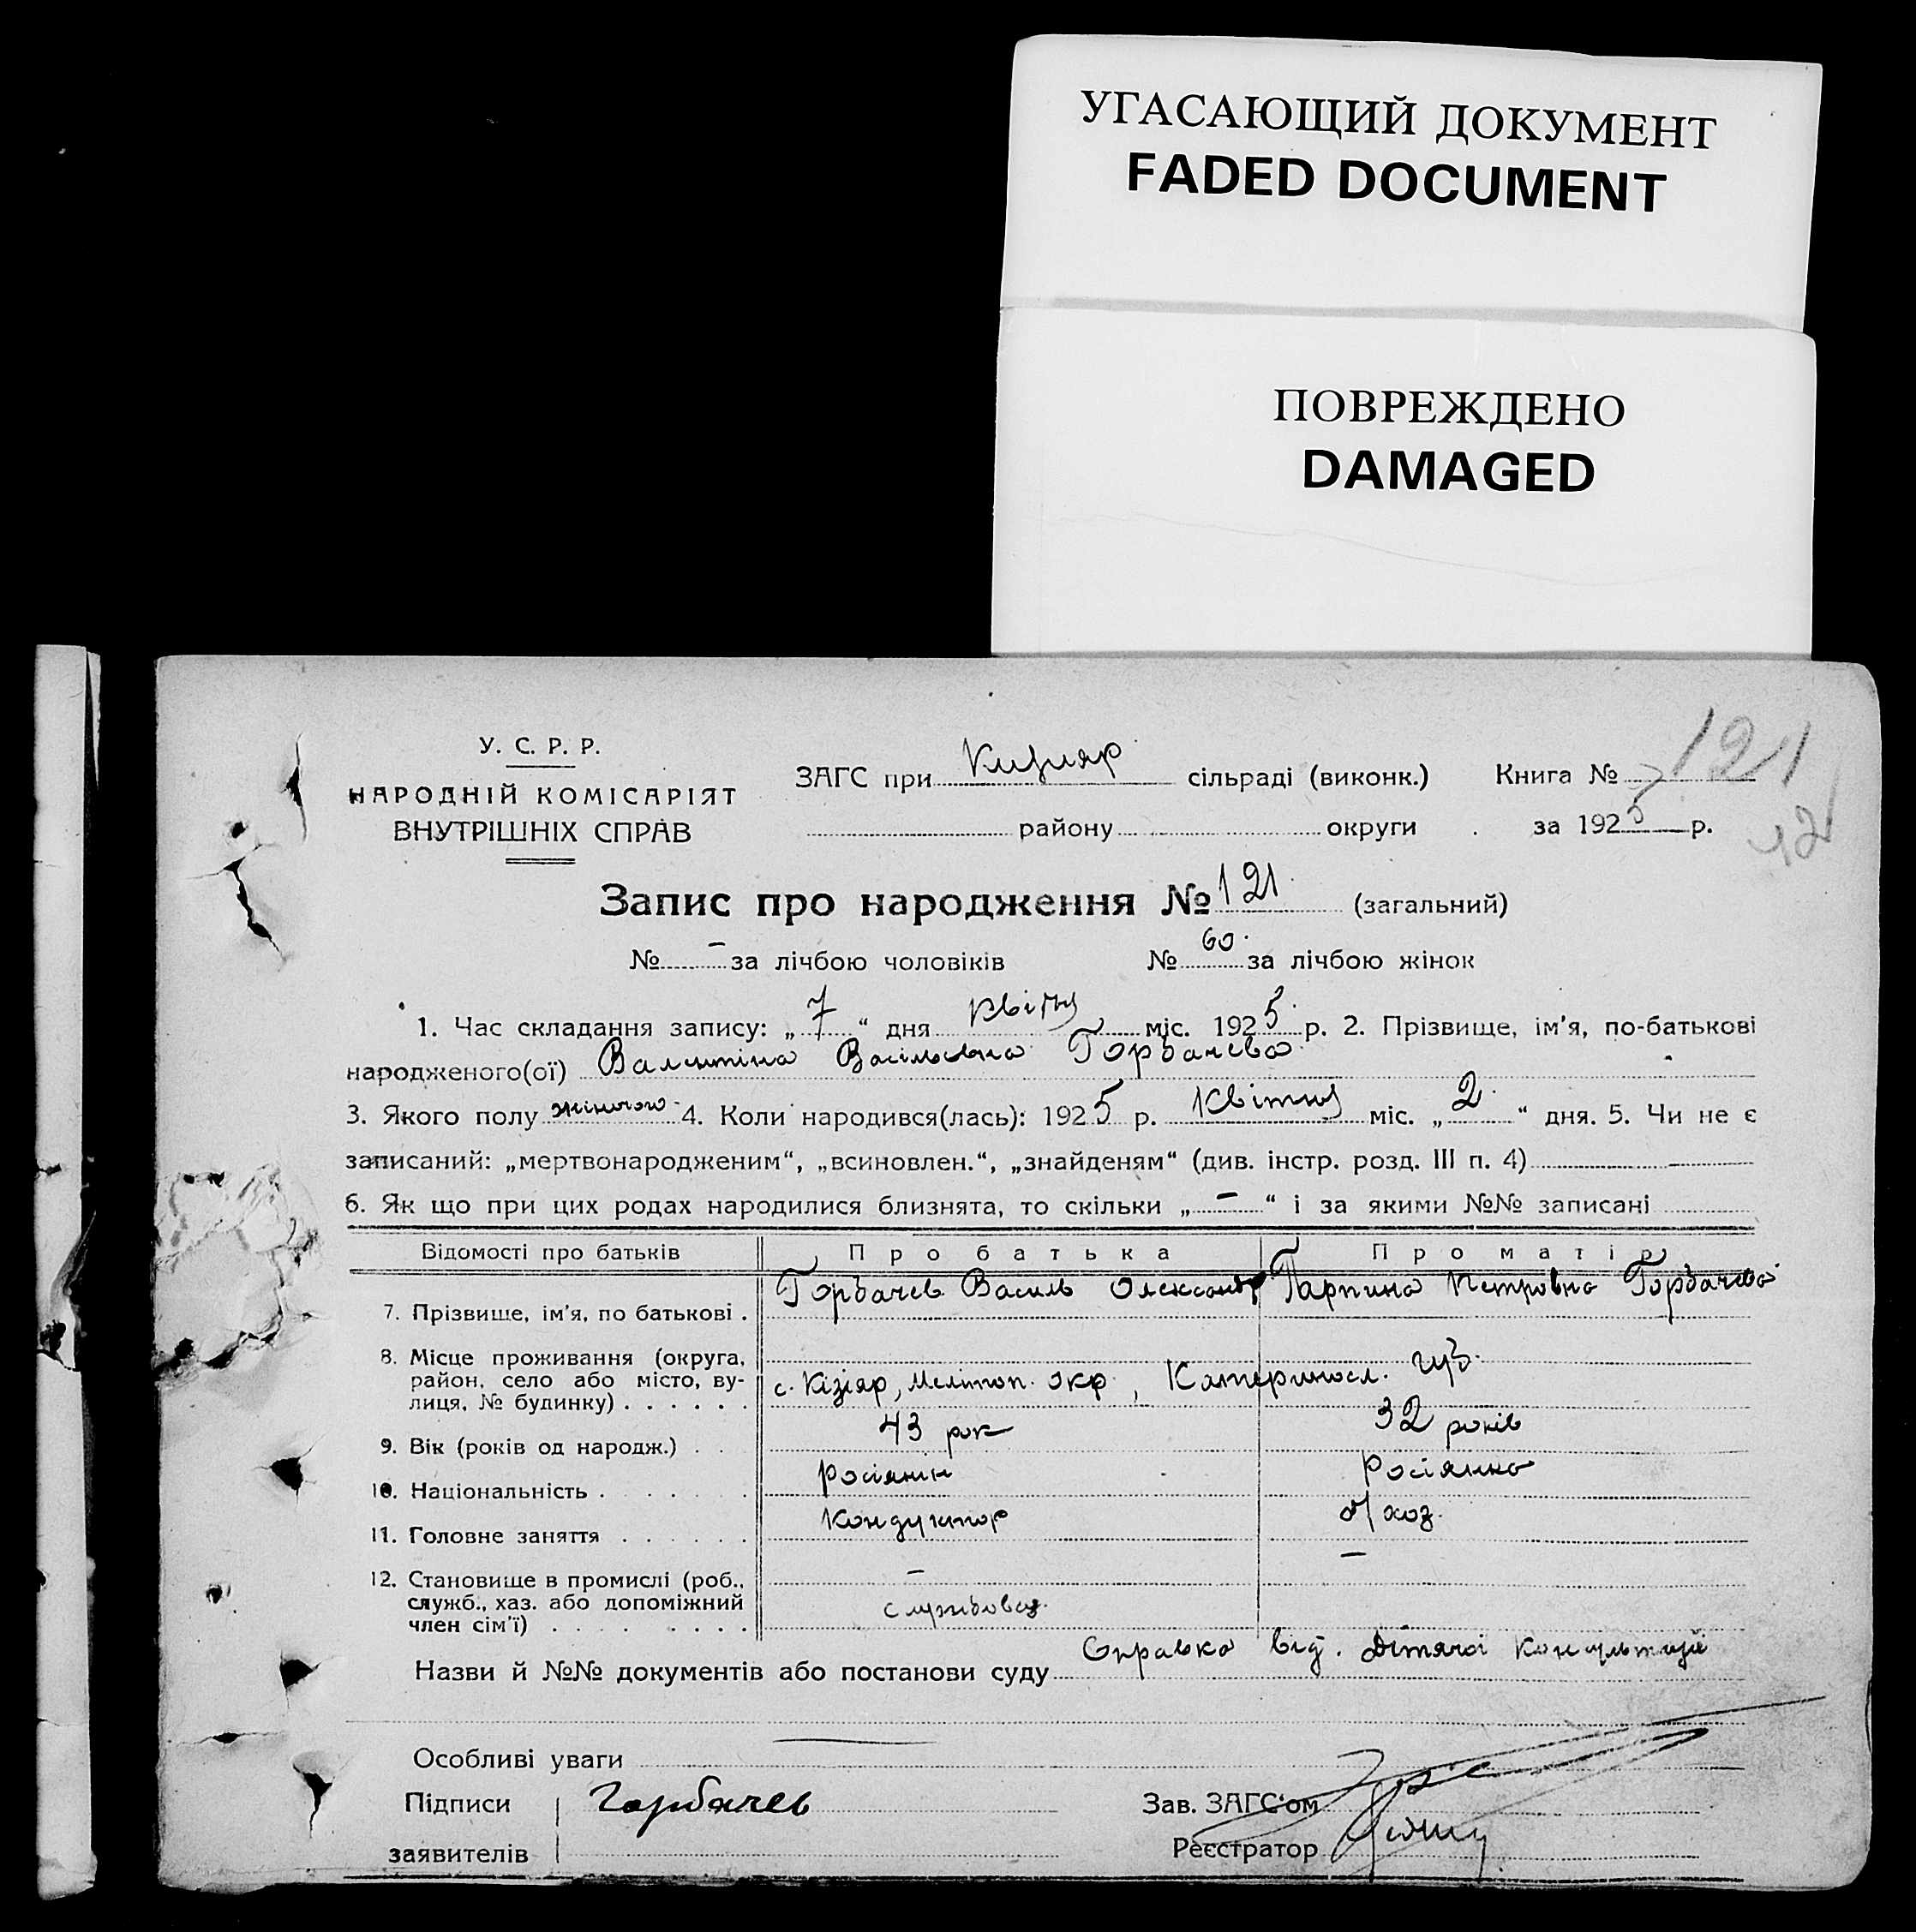 УГАСАЮЩИЙ ДОКУМЕНТ
FADED DOCUMENT
ПОВРЕЖДЕНО
DAMAGED
У. С. Р. Р.
НАРОДНІЙ КОМІСАРІЯТ
ВНУТРІШНІХ СПРАВ
ЗАГС при Кизияр сільраді (виконк.) Книга № 121
району округи за 1925 р.
12
Запис про народження № 121 (загальний)
№ – за лічбою чоловіків № 60 за лічбою жінок
1. Час складання запису: „7“ дня квітня міс. 1925 р. 2. Прізвище, ім'я, по-батькові
народженого(ої) Валентіна Васільєвна Горбачева
3. Якого полу жіночого 4. Коли народився(лась): 1925 р. Квітня міс. „2“ дня. 5. Чи не є
записаний: „мертвонародженим“, „всиновлен.“, „знайденям“ (див. інстр. розд. III п. 4)
6. Як що при цих родах народилися близнята, то скільки „–“ і за якими №№ записані
Відомості про батьків Про батька Про матір
7. Прізвище, ім'я, по батькові . Горбачев Василь Олександр Гарпина Петровна Горбачева
8. Місце проживання (округа,
район, село або місто, ву-
лиця, № будинку) . . . . . . с. Кізіяр, Мелітоп. окр., Катериносл. губ.
9. Вік (років од народж.) . . 43 рок 32 років
10. Національність . . . . . . . росіянин Росіянка
11. Головне заняття . . . . . . Кондуктор д/хоз.
12. Становище в промислі (роб., – –
служб., хаз. або допоміжний службовец.
член сім'ї) . . . . . . . . .
Назви й №№ документів або постанови суду Справка від. Дітячої консультації
Особливі уваги
Підписи Горбачев Зав. ЗАГС'ом
заявителів Реєстратор